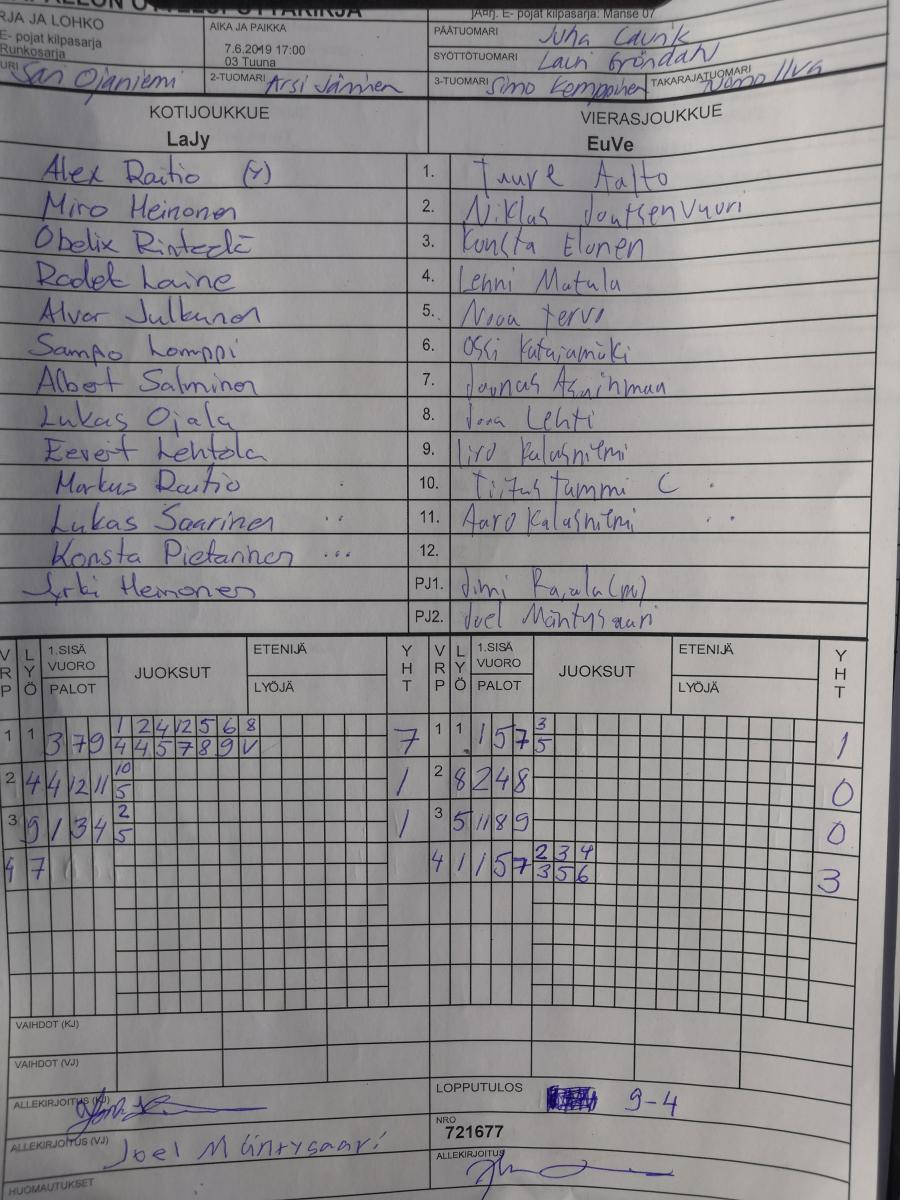 JÄRJ. E- pojat kilpasarja: Manse 07
RJA JA LOHKO
E- pojat kilpasarja
Runkosarja
AIKA JA PAIKKA
7.6.2019 17:00
03 Tuuna
PÄÄTUOMARI Juha
SYÖTTÖTUOMARI Lauri Gröndahl
URI Ojaniemi
2-TUOMARI Arsi
3-TUOMARI Simo Kemppinen
TAKARAJATUOMARI
KOTIJOUKKUE
LaJy
VIERASJOUKKUE
EuVe
Alex Raitio (Y) 1. Tuure Aalto
Miro Heinonen 2. Niklas Joutsenvuori
Obelix Rintelä 3. Konsta Elonen
Laine 4. Lenni Matula
Alvar Julkunen 5. Nooa Tervo
Sampo Lomppi 6. Ossi Katajamäki
Albert Salminen 7. Joonas
Lukas Ojala 8. Joona Lehti
Eevert Lehtola 9. Iiro Kalasniemi
Markus Raitio . 10. Tiitus Tammi C .
Lukas Saarinen .. 11. Aaro Kalasniemi ..
Konsta Pietarinen ... 12.
Jyrki Heinonen PJ1. Jimi Rajala (m)
PJ2. Joel Mäntysaari
V R P L Y Ö 1.SISÄ VUORO PALOT JUOKSUT ETENIJÄ LYÖJÄ Y H T V R P L Y Ö 1.SISÄ VUORO PALOT JUOKSUT ETENIJÄ LYÖJÄ Y H T
1 1 3 7 9 1 2 4 12 5 6 8 7 1 1 1 5 7 3 1
4 4 5 7 8 9 V 5
2 4 4 12 11 10 1 2 8 2 4 8 0
5
3 9 1 3 4 2 1 3 5 11 8 9 0
5
4 7 4 1 1 5 7 2 3 4 3
3 5 6
VAIHDOT (KJ)
VAIHDOT (VJ)
ALLEKIRJOITUS (KJ)
LOPPUTULOS 9-4
ALLEKIRJOITUS (VJ) Joel Mäntysaari
NRO
721677
ALLEKIRJOITUS
HUOMAUTUKSET